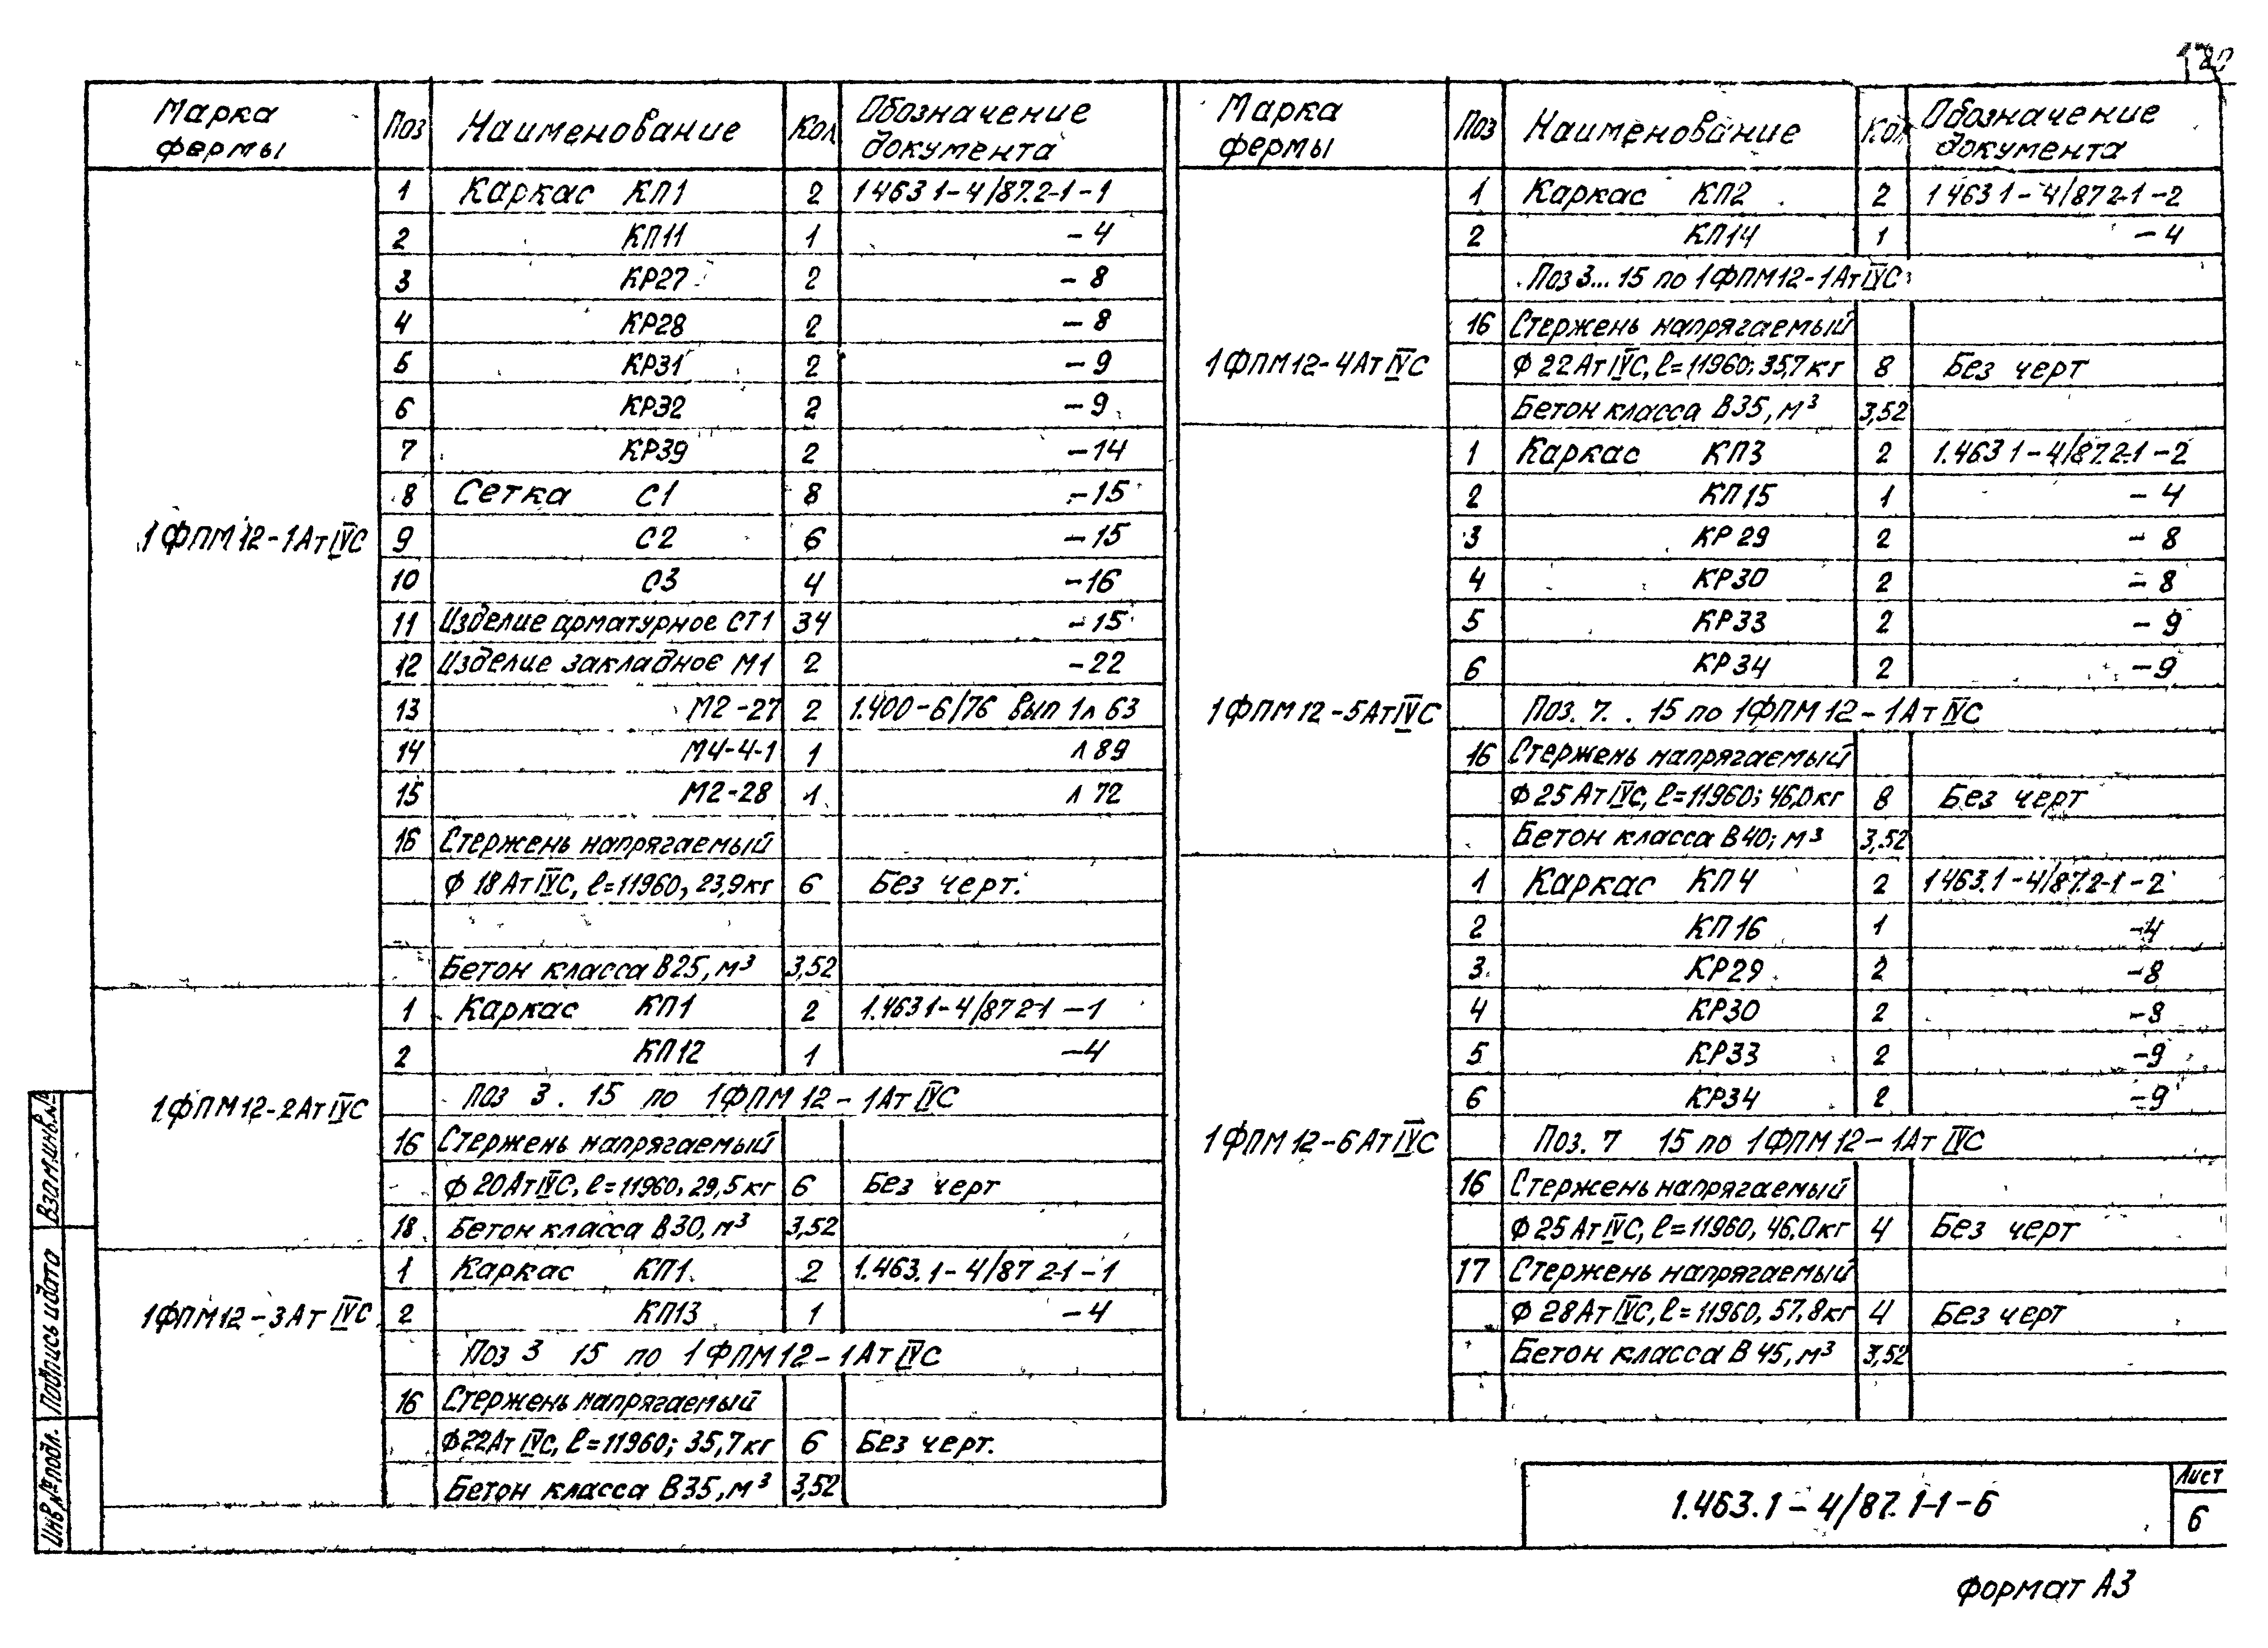 Марка фермы Поз Наименование Кол Обозначение документа
1ФПМ12-1АтIVС
1 Каркас КП1 2 1 463 1-4/87.2-1-1
2 КП11 1 -4
3 КР27 2 -8
4 КР28 2 -8
5 КР31 2 -9
6 КР32 2 -9
7 КР39 2 -14
8 Сетка С1 8 -15
9 С2 6 -15
10 С3 4 -16
11 Изделие арматурное СТ1 34 -15
12 Изделие закладное М1 2 -22
13 М2-27 2 1.400-6/76 Вып 1л 63
14 М4-4-1 1 л 89
15 М2-28 1 л 72
16 Стержень напрягаемый
Ф 18АтIVС, ℓ=11960, 23,9кг 6 Без черт.
Бетон класса В25, м³ 3,52
1ФПМ12-2АтIVС
1 Каркас КП1 2 1.463 1-4/87 2-1 -1
2 КП12 1 -4
Поз 3 . 15 по 1ФПМ 12-1АтIVС
16 Стержень напрягаемый
Ф 20АтIVС, ℓ=11960, 29,5кг 6 Без черт
18 Бетон класса В30, м³ 3,52
1ФПМ12-3АтIVС
1 Каркас КП1. 2 1.463.1-4/87 2-1-1
2 КП13 1 -4
Поз 3 15 по 1ФПМ12-1АтIVС
16 Стержень напрягаемый
Ф22АтIVС, ℓ=11960; 35,7кг 6 Без черт.
Бетон класса В35, м³ 3,52
Марка фермы Поз Наименование Кол Обозначение документа
1ФПМ12-4АтIVС
1 Каркас КП2 2 1 463 1-4/87 2-1-2
2 КП14 1 -4
Поз 3...15 по 1ФПМ12-1АтIVС
16 Стержень напрягаемый
Ф 22АтIVС, ℓ=11960; 35,7кг 8 Без черт
Бетон класса В35, м³ 3,52
1ФПМ12-5АтIVС
1 Каркас КП3 2 1.463 1-4/87.2-1-2
2 КП15 1 -4
3 КР29 2 -8
4 КР30 2 -8
5 КР33 2 -9
6 КР34 2 -9
Поз. 7. . 15 по 1ФПМ12-1АтIVС
16 Стержень напрягаемый
Ф 25АтIVС, ℓ=11960; 46,0кг 8 Без черт
Бетон класса В40; м³ 3,52
1ФПМ12-6АтIVС
1 Каркас КП4 2 1 463.1-4/87.2-1-2
2 КП16 1 -4
3 КР29 2 -8
4 КР30 2 -8
5 КР33 2 -9
6 КР34 2 -9
Поз. 7 15 по 1ФПМ12-1АтIVС
16 Стержень напрягаемый
Ф 25АтIVС, ℓ=11960, 46,0кг 4 Без черт
17 Стержень напрягаемый
Ф 28АтIVС, ℓ=11960, 57,8кг 4 Без черт
Бетон класса В45, м³ 3,52
Взам.инв.№
Подпись и дата
Инв.№подл.
1.463.1-4/87.1-1-6
Лист
6
Формат А3